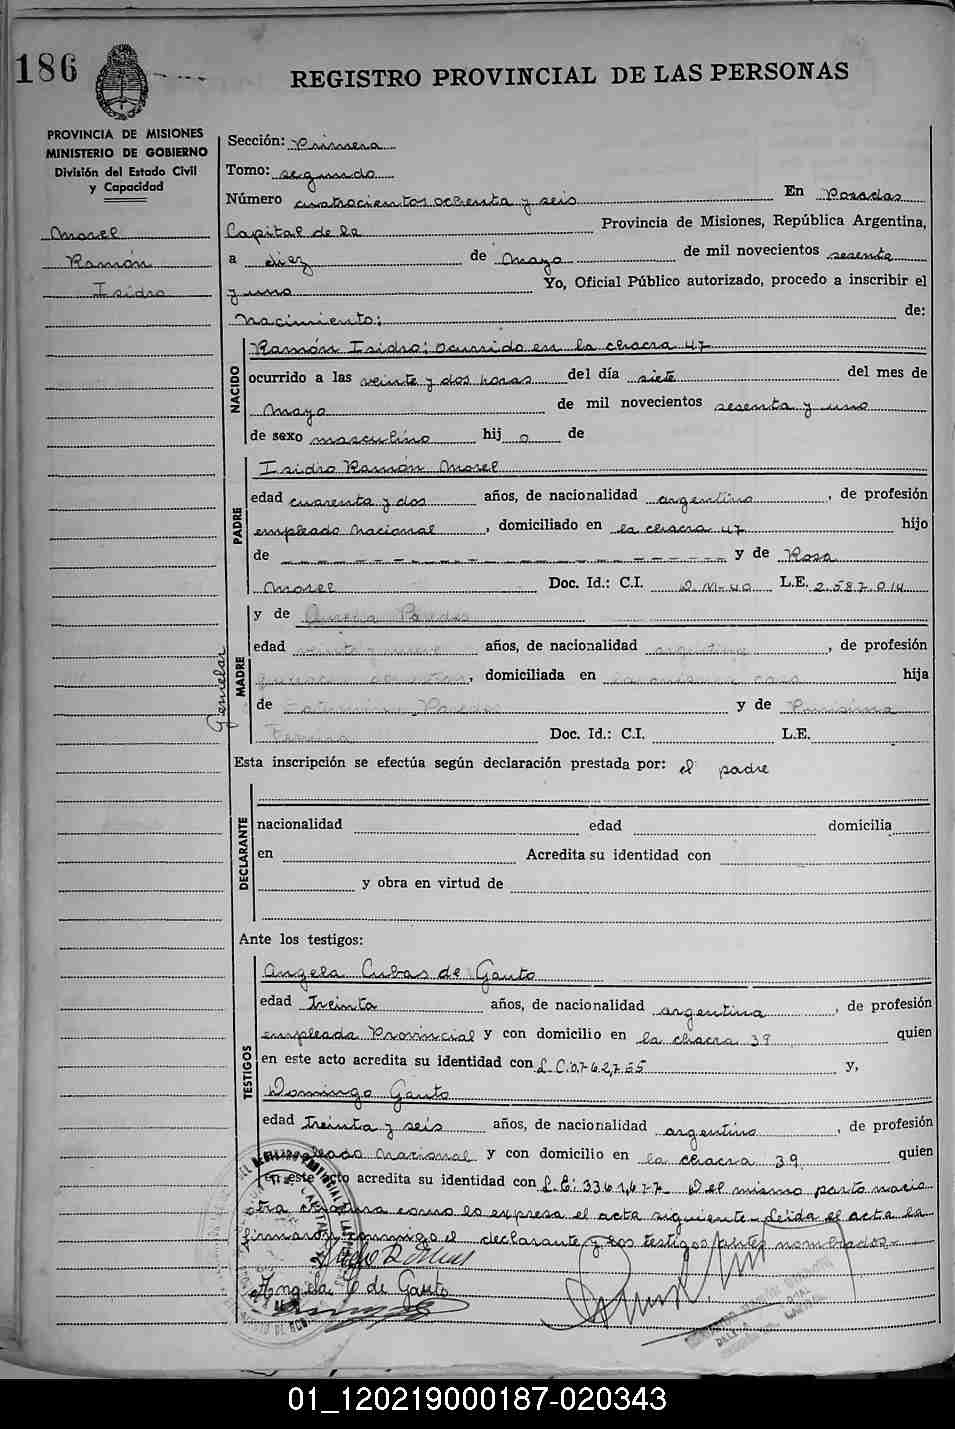 186
REGISTRO PROVINCIAL DE LAS PERSONAS
PROVINCIA DE MISIONES
MINISTERIO DE GOBIERNO
División del Estado Civil
y Capacidad
Morel
Ramón
Isidro
Sección: Primera
Tomo: segundo
Número cuatrocientos ochenta y seis En Posadas
Capital de la Provincia de Misiones, República Argentina,
a diez de Mayo de mil novecientos sesenta
y uno Yo, Oficial Público autorizado, procedo a inscribir el
Nacimiento: de:
NACIDO
Ramón Isidro; ocurrido en la chacra 47
ocurrido a las veinte y dos horas del día siete del mes de
Mayo de mil novecientos sesenta y uno
de sexo masculino hij o de
PADRE
Isidro Ramón Morel
edad cuarenta y dos años, de nacionalidad argentino, de profesión
empleado Nacional, domiciliado en la chacra 47 hijo
de y de Rosa
Morel Doc. Id.: C.I. D.M-40 L.E. 2.587.014
Gemelar
MADRE
y de Aurelia Paredes
edad veinte y nueve años, de nacionalidad argentina, de profesión
domiciliada en la misma casa hija
de Paredes y de
Doc. Id.: C.I. L.E.
Esta inscripción se efectúa según declaración prestada por: el padre
DECLARANTE
nacionalidad edad domicilia
en Acredita su identidad con
y obra en virtud de
Ante los testigos:
TESTIGOS
Angela Cubas de Gauto
edad treinta años, de nacionalidad argentina, de profesión
empleada Provincial y con domicilio en la chacra 39 quien
en este acto acredita su identidad con L.C.0.762.755 y,
Domingo Gauto
edad treinta y seis años, de nacionalidad argentino, de profesión
Nacional y con domicilio en la chacra 39 quien
en este acto acredita su identidad con L.E: 3361.677. Del mismo parto nació
otra como lo expresa el acta siguiente - Leída el acta la
firmaron conmigo el declarante y los testigos antes nombrados.-
Angela C de Gauto
01_120219000187-020343